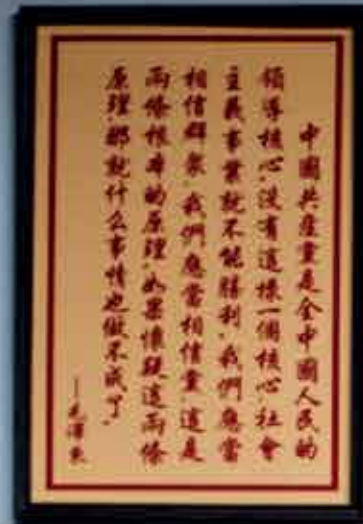 中國共産黨是全中國人民的
領導核心,没有這樣一個核心,社會
主義事業就不能勝利,我們應當
相信群衆,我們應當相信黨,這是
兩條根本的原理,如果懷疑這兩條
原理,那就什么事情也做不成了。
——毛澤東